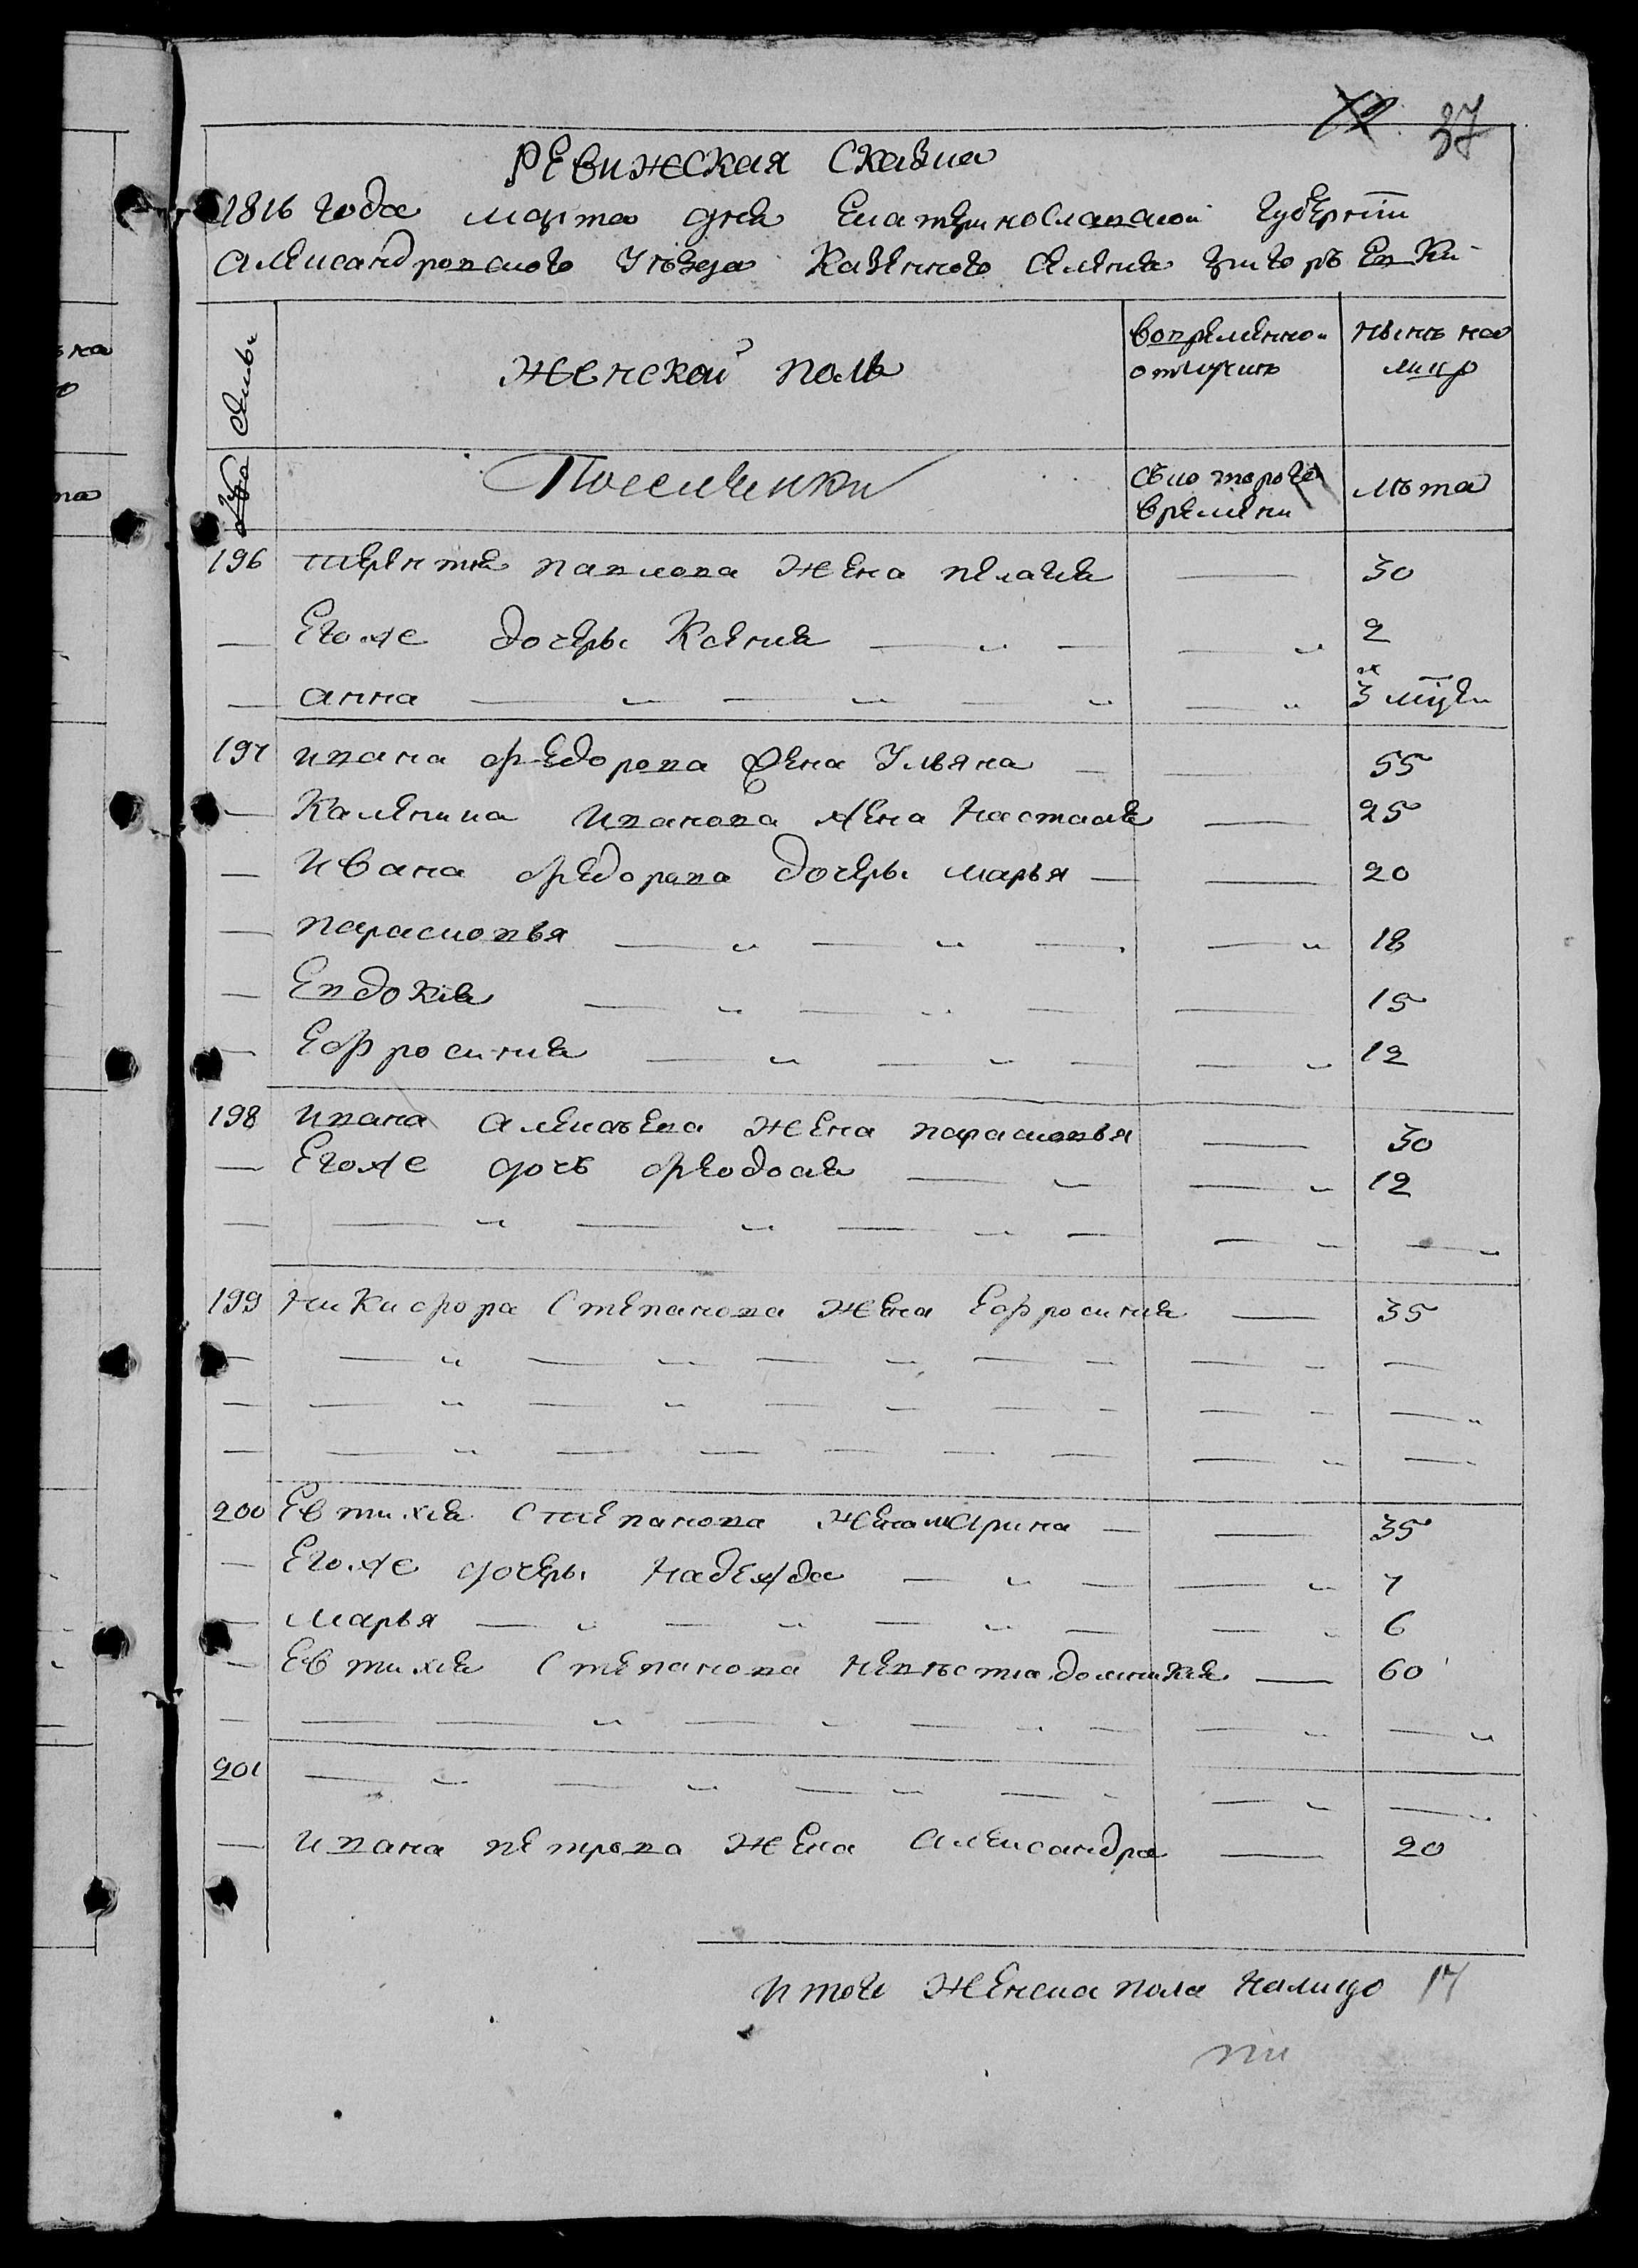 72. 37
РЕвижская Сказка
1816 года марта дня Екатеринославской Губернiи
Александровского Уѣзда Казенного селения Григорѣевки
семьи
женской полъ
вопремѣнно-отлучкѣ
нынѣ на лицо
Поселенки
съкоторого времени
лѣта
196 терентия павлова жена пелагия — 30
— Егоже дочерь Ксения — „ — — „ 2
— анна — „ — „ — „ — „ 3 мѣ:
197 ивана федорова жена Ульяна — — 55
— Каленика иванова жена Настасия — 25
— Ивана федорова дочерь марья — — 20
— парасковья — „ — „ — — „ 18
— Евдокия — „ — „ — — 15
— Ефросиния — „ — „ — — „ 12
198 ивана алексѣева жена парасковья — 30
— Егоже дочь феодосия — „ — „ 12
— — „ — „ — „ — — „ — „
199 Никифора Степанова жена Ефросиния — 35
— — „ — „ — „ — „ — „ —
— — „ — „ — „ — „ — „ — „
— — „ — — — — — — „ —
200 Евтихия Степанова жена Ирина — — 35
— Егоже дочерь надежда — „ — — „ 7
— марья — „ — „ — „ — — „ 6
— Евтихия Степанова невѣстка домникия — 60
— — — „ — „ — „ — — „ — „
201 — „ — „ — „ — „ — „ —
— ивана петрова жена александра — 20
Итого женска пола налицо 17